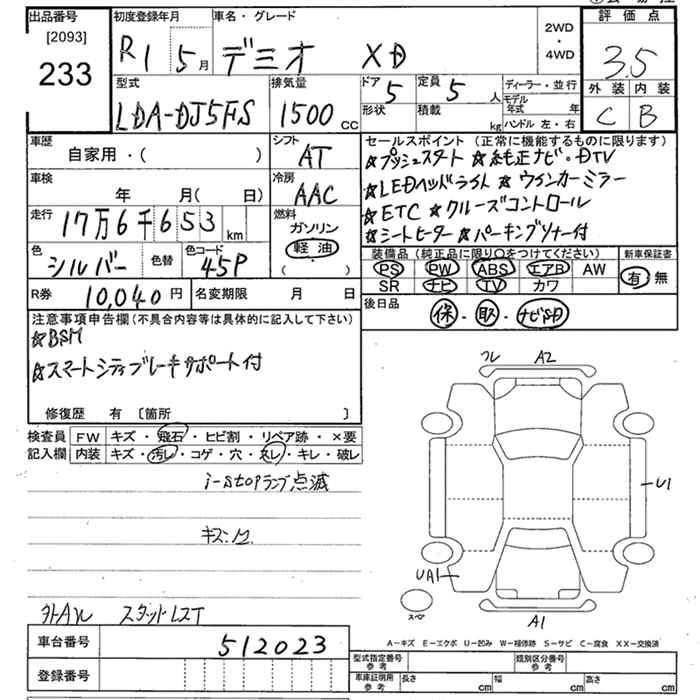 出品番号 初度登録年月 車名・グレード 2WD・4WD 評価点
[2093] 233 R1 5月 デミオ XD 3.5
型式 排気量 ドア 5 定員 5人 ディーラー・並行 外装 内装
LDA-DJ5FS 1500cc 形状 積載 kg モデル年式 年 C B
ハンドル 左・右
車歴 自家用・( ) シフト AT セールスポイント(正常に機能するものに限ります)
☆プッシュスタート ☆純正ナビ・DTV
車検 年 月(日) 冷房 AAC ☆LEDヘッドライト ☆ウインカーミラー
☆ETC ☆クルーズコントロール
走行 17万6千653km 燃料 ガソリン 軽油 ( ) ☆シートヒーター ☆パーキングソナー付
色 シルバー 色替 色コード 45P 装備品(純正品に限り○をつけてください) 新車保証書
PS PW ABS エアB AW 有 無
SR ナビ TV カワ
R券 10,040円 名変期限 月 日 後日品 保・取・ナビSD
注意事項申告欄(不具合内容等は具体的に記入して下さい)
☆BSM
☆スマートシティブレーキサポート付
修復歴 有〔箇所 〕
検査員記入欄 FW キズ・飛石・ヒビ割・リペア跡・×要
内装 キズ・汚レ・コゲ・穴・スレ・キレ・破レ
i-stopランプ点滅
キズ・凹
外AW スタッドレスT
フル A2
U1
UA1
スペア
A1
A-キズ E-エクボ U-凹み W-補修跡 S-サビ C-腐食 XX-交換済
車台番号 512023
登録番号
型式指定番号 参考 類別区分番号 参考
車庫証明用 参考 長さ cm 幅 cm 高さ cm